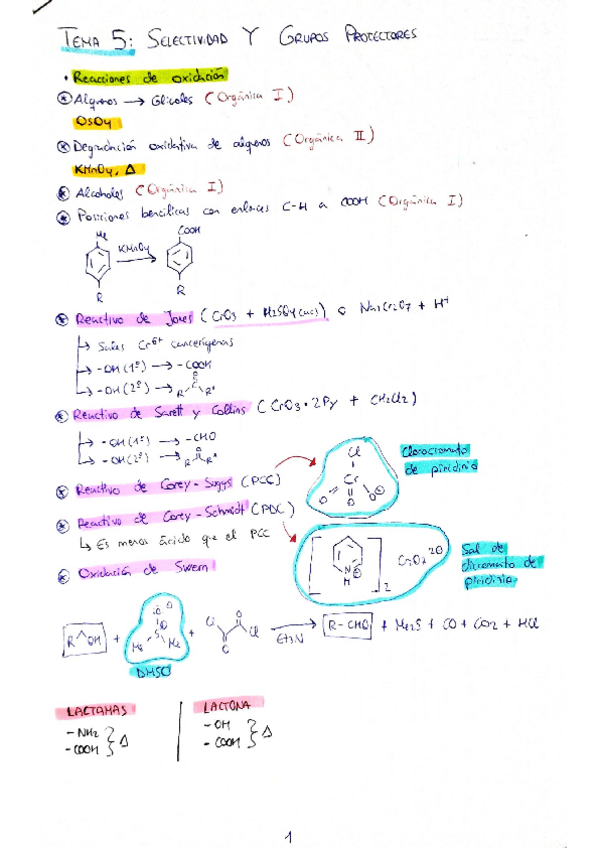 TEMA 5: SELECTIVIDAD Y GRUPOS PROTECTORES
• Reacciones de oxidación
⊛ Alquenos → Glicoles (Orgánica I)
OsO4
⊛ Degradación oxidativa de alquenos (Orgánica II)
KMnO4, Δ
⊛ Alcoholes (Orgánica I)
⊛ Posiciones bencílicas con enlaces C-H a COOH (Orgánica I)
Me
COOH
KMnO4
R
R
⊛ Reactivo de Jones (CrO3 + H2SO4(ac)) o Na2Cr2O7 + H+
↳ Sales Cr6+ cancerígenas
↳ -OH(1º) → -COOH
↳ -OH(2º) → R O R'
⊛ Reactivo de Sarett y Collins (CrO3·2Py + CH2Cl2)
↳ -OH(1º) → -CHO
↳ -OH(2º) → R O R'
Cl
Cr
O O O⊖
Clorocromato
de piridinio
⊛ Reactivo de Corey-Suggs (PCC)
⊛ Reactivo de Corey-Schmidt (PDC)
↳ Es menos ácido que el PCC
N⊕
H
2
Sal de
dicromato de
piridinio
⊛ Oxidación de Swern
R OH + Me S Me + Cl O O Cl
Et3N
R-CHO + Me2S + CO + CO2 + HCl
DMSO
LACTAMAS
-NH2
-COOH } Δ
LACTONA
-OH
-COOH } Δ
1